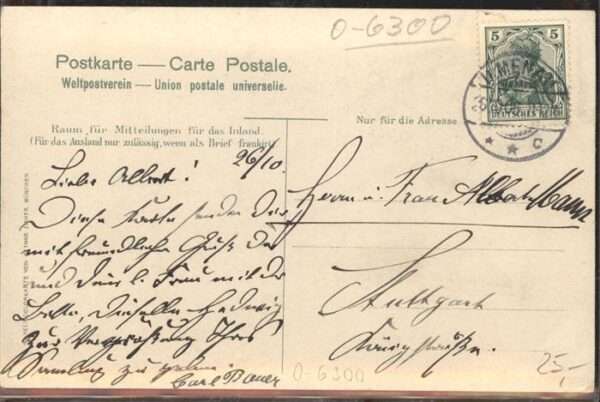 0-6300
Postkarte — Carte Postale.
Weltpostverein — Union postale universelle.
5 5
DEUTSCHES REICH
ILMENAU
* * c
Nur für die Adresse
Raum für Mitteilungen für das Inland.
(Für das Ausland nur zulässig, wenn als Brief frankirt)
26/10.
Lieber Albert!
Diese Karte senden Dir
mit freundlichem Gruß
und Deine l. Frau mit der
Bitte, dieselbe Hedwig
zur Ihres
Sammlung zu geben.
Carl Bauer
Herrn u. Frau Albert Mann
Stuttgart
Königstraße.
0-6300
25,-